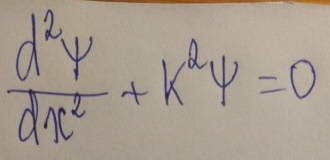 d²Ψ/dx² + k²Ψ = 0